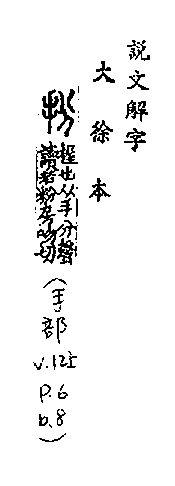 説文解字
大徐本
扮
握也从手分聲
讀若粉房吻切
(手部
v.12上
p.6
b.8)